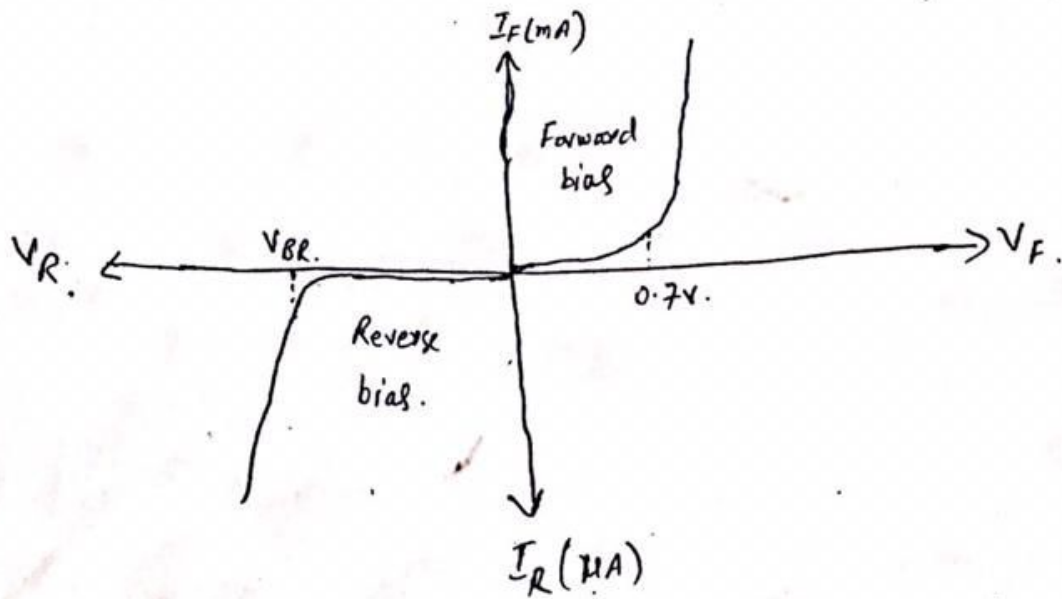 I_F (mA)
Forward
bias
V_R.
V_BR.
V_F.
0.7V.
Reverse
bias.
I_R (μA)